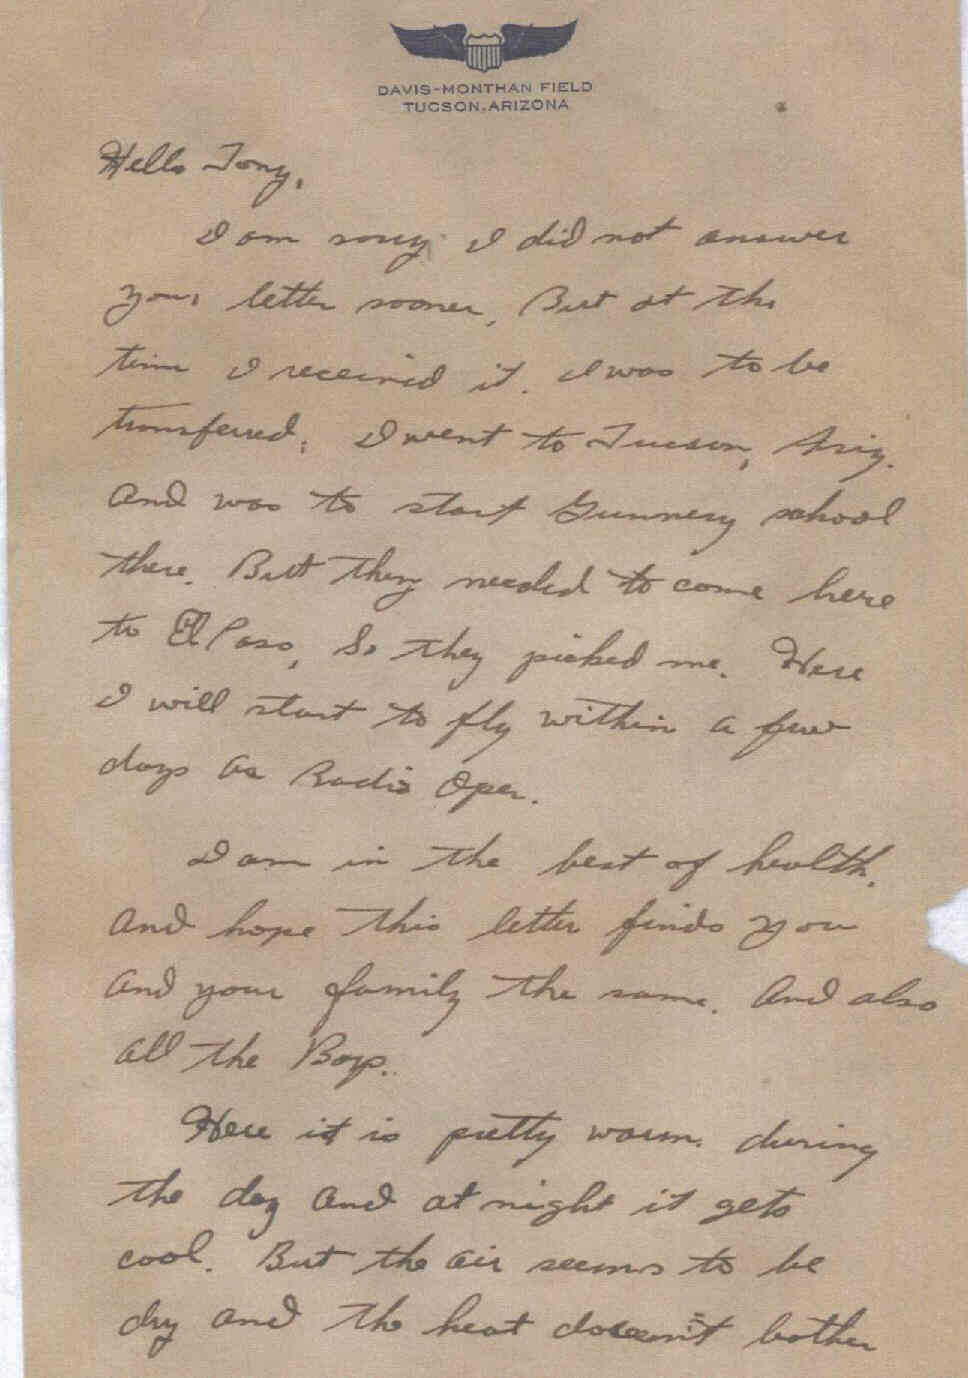 DAVIS-MONTHAN FIELD
TUCSON, ARIZONA
Hello Tony,
I am sorry I did not answer
your letter sooner. But at the
time I received it. I was to be
transferred. I went to Tucson, Ariz.
and was to start Gunnery school
there. But they needed to come here
to El Paso, So they picked me. Here
I will start to fly within a few
days as Radio Oper.
I am in the best of health.
And hope this letter finds you
and your family the same. And also
all the Boys.
Here it is pretty warm during
the day and at night it gets
cool. But the air seems to be
dry and the heat doesn't bother